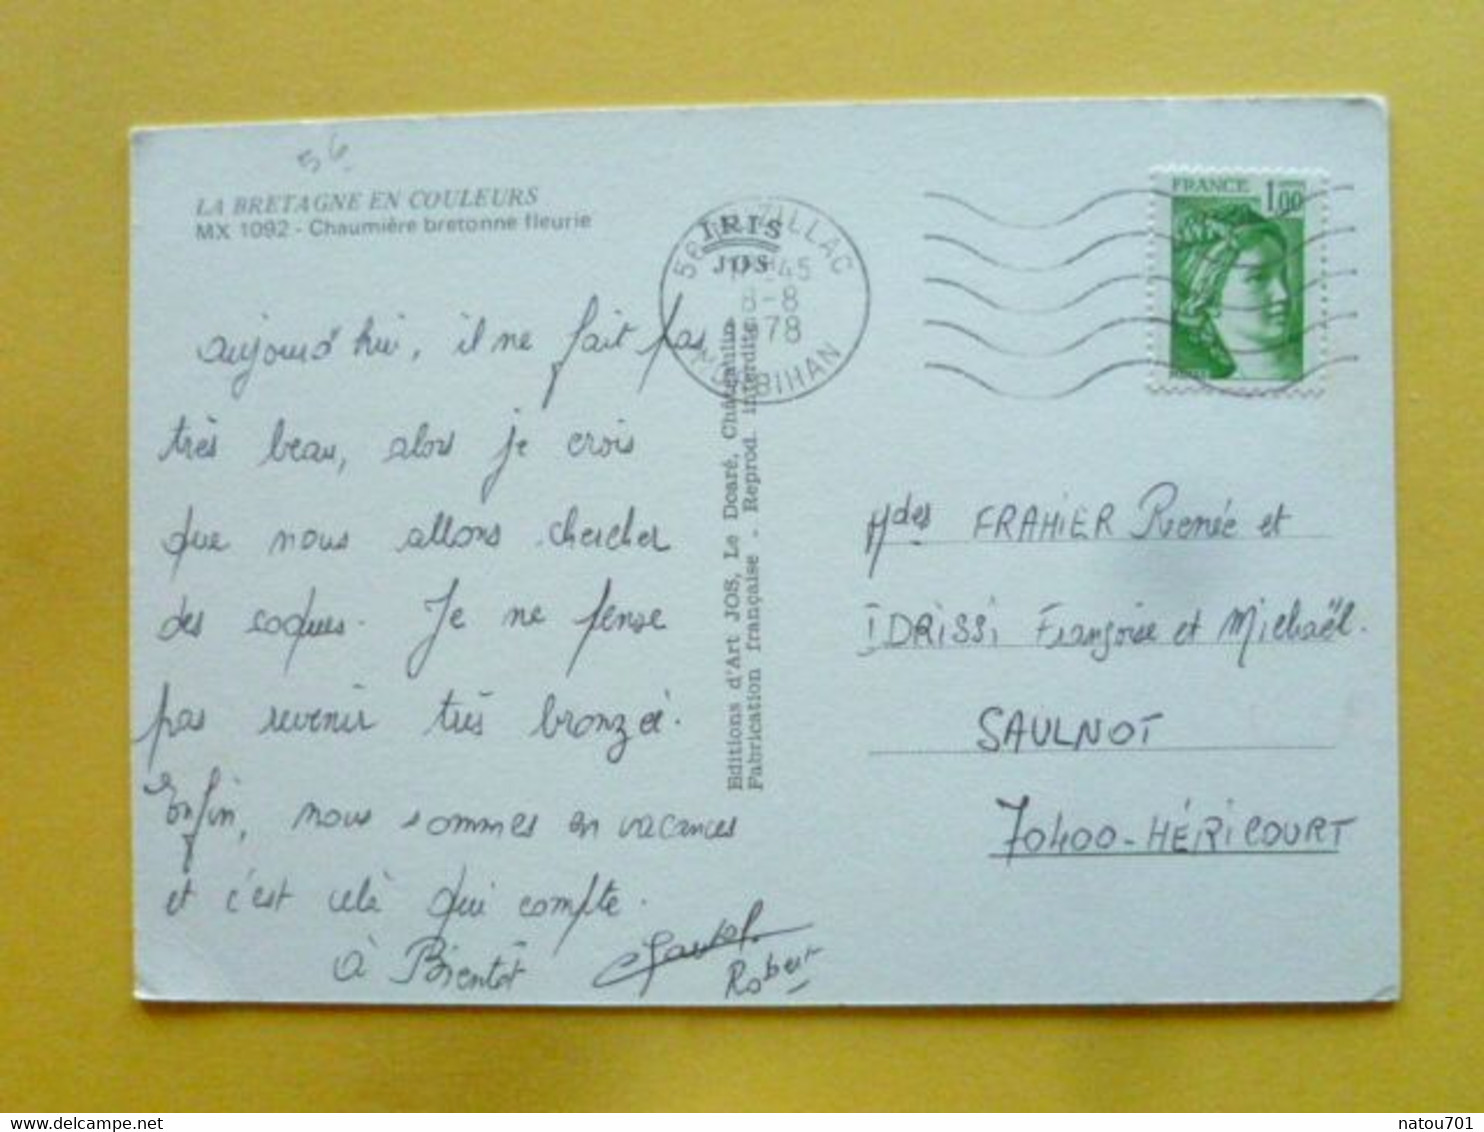 56
LA BRETAGNE EN COULEURS
MX 1092 - Chaumière bretonne fleurie
aujourd'hui, il ne fait pas
très beau, alors je crois
que nous allons chercher
des coques. Je ne pense
pas revenir très bronzée.
Enfin, nous sommes en vacances
et c'est celà qui compte.
à Bientôt
Robert
IRIS
JOS
Editions d'Art JOS, Le Doaré, Châteaulin
Fabrication française - Reprod. interdite
56 ZILLAC
45
-8
78
MORBIHAN
FRANCE 1,00
Mdes FRAHIER Renée et
IDRISSI Françoise et Michaël.
SAULNOT
70400-HÉRICOURT
natou701